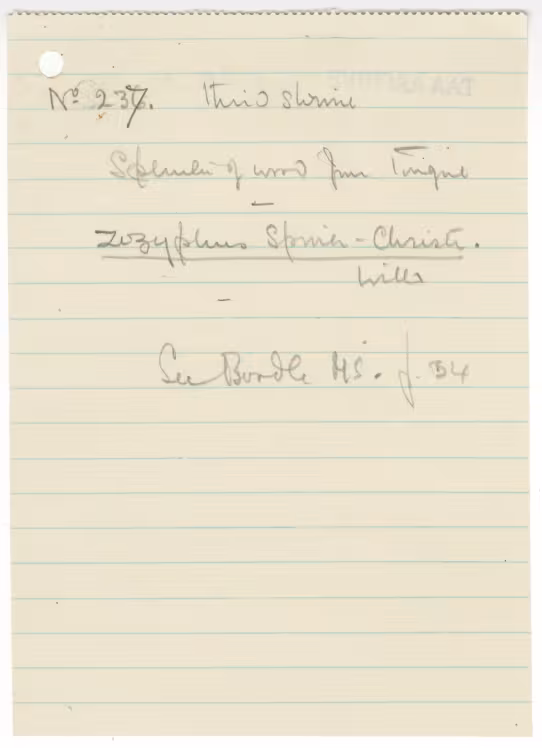 Nº 237. Third shrine
Specimen of wood from Tongue
—
Zizyphus Spina-Christi.
Willd
—
See Boodle MS. f. 34